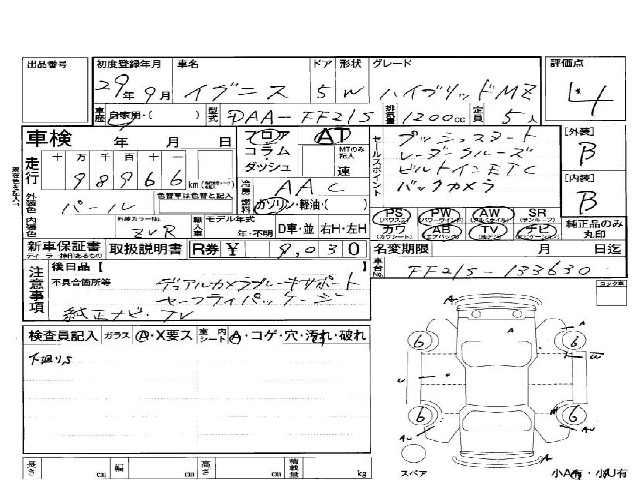 出品番号 初度登録年月 車名 ドア 形状 グレード 評価点
29年9月 イグニス 5 W ハイブリッドMZ 4
車歴 自家用・( ) 型式 DAA-FF21S 排気量 1200cc 定員 5人
車検 年 月 日 フロア AT セールスポイント プッシュスタート [外装]
走行 十万 万 千 百 十 一 コラム・ダッシュ MTのみ記入 連 レーダークルーズ B
98966 km 冷房 AAC ビルトインETC [内装]
外装色 パール 色替車は色名と記入 燃料 ガソリン・軽油・( ) バックカメラ B
内装色 外装カラーNo. ZVR 輸入車 モデル年式 年・不明 D車・並 右H・左H PS PW AW SR 純正品のみ丸印
カワ AB TV ナビ
新車保証書 取扱説明書 R券 ¥ 9,030 名変期限 月 日迄
注意事項 後日品【 】 車台No. FF21S-133630
不具合箇所等 デュアルカメラブレーキサポート
セーフティパッケージ
純正ナビ・TV
検査員記入 ガラス A・X要ス 室内シート A・コゲ・穴・汚れ・破れ
下廻りS
A
A
6 6
W
U
6 6
AU AU
A
長さ cm 幅 cm 高さ cm 積載量 kg スペア 小A有・小U有